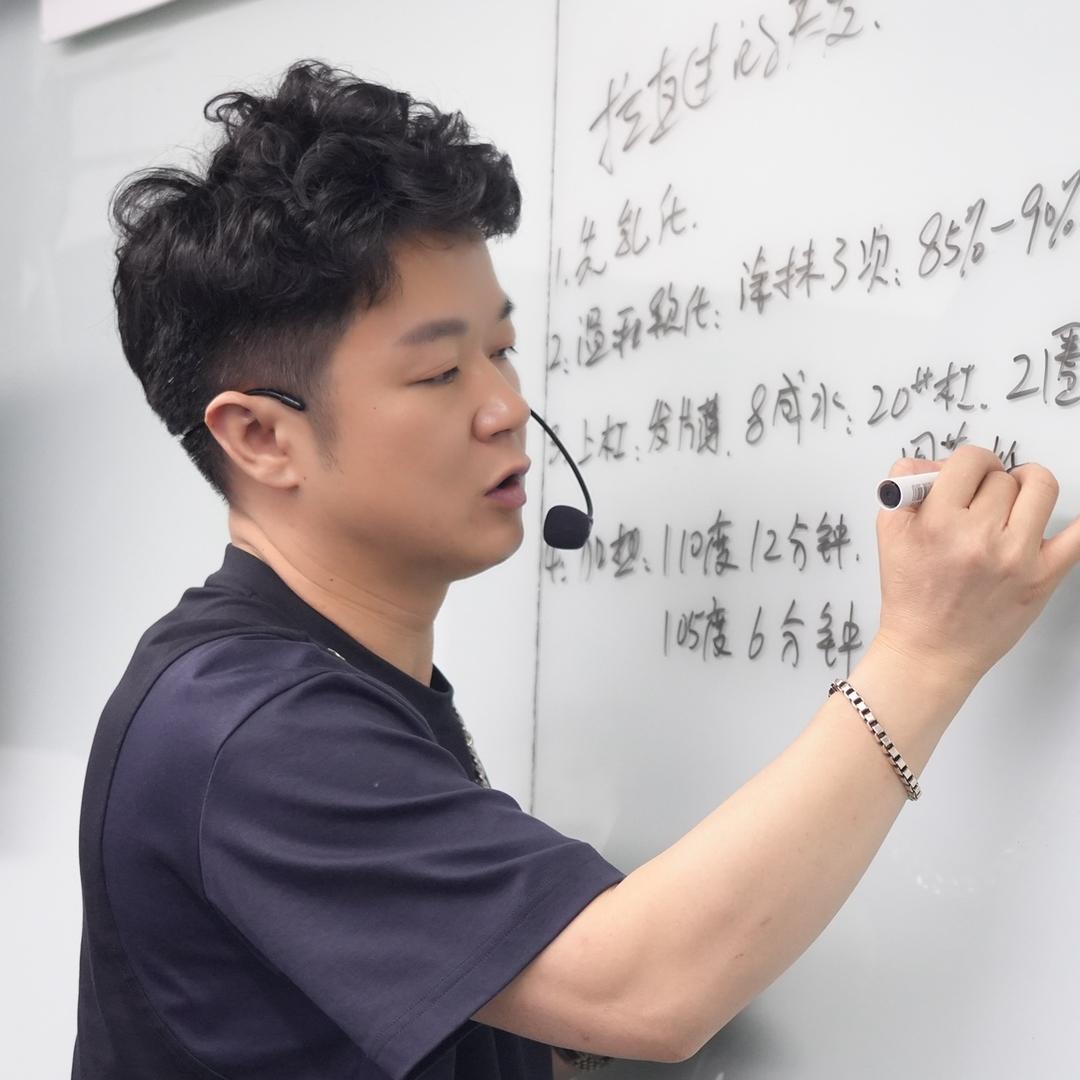 拉直过的共立.
1. 先乳化.
2. 温和软化: 涂抹3次: 85%-90%
3. 上杠: 发片薄. 8成水: 20#杠. 21圈
4. 加热: 110度 12分钟.
105度 6分钟